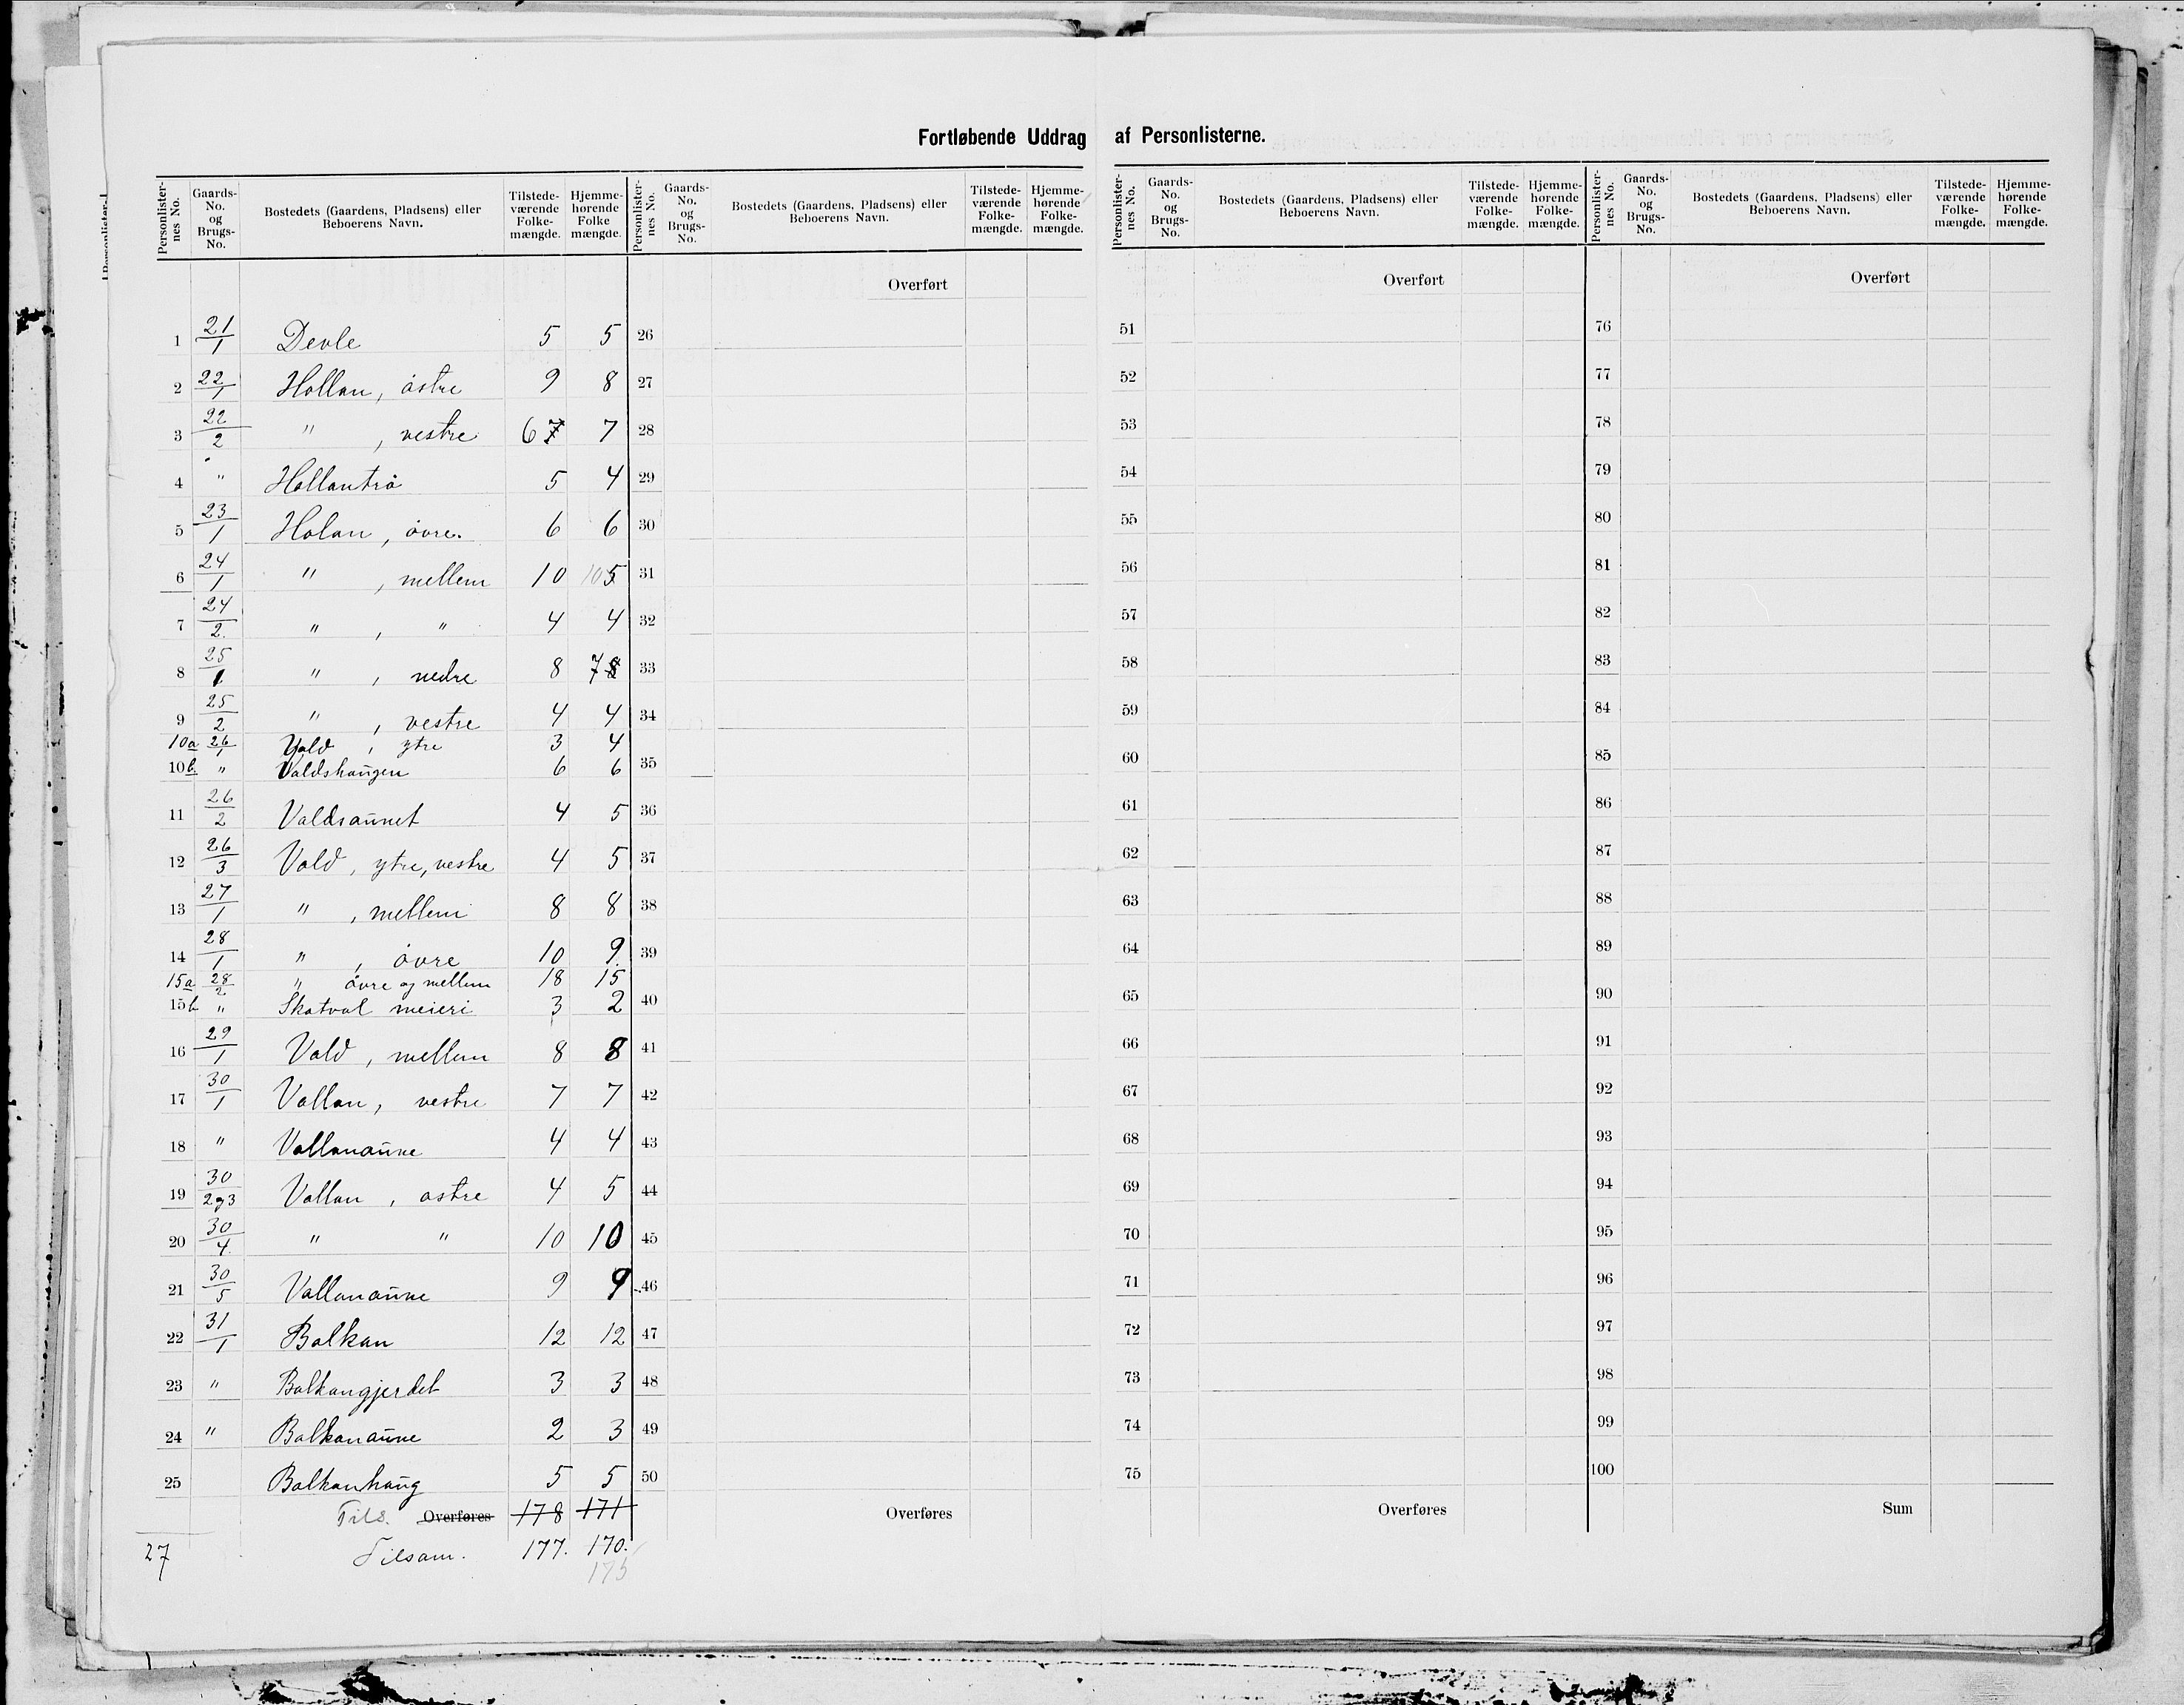 Fortløbende Uddrag af Personlisterne.
Personlister-nes No. Gaards-No. og Brugs-No. Bostedets (Gaardens, Pladsens) eller Beboerens Navn. Tilstede-værende Folke-mængde. Hjemme-hørende Folke mængde. Personlister-nes No. Gaards-No. og Brugs-No. Bostedets (Gaardens, Pladsens) eller Beboerens Navn. Tilstede-værende Folke-mængde. Hjemme-hørende Folke-mængde. Personlister-nes No. Gaards-No. og Brugs-No. Bostedets (Gaardens, Pladsens) eller Beboerens Navn. Tilstede-værende Folke-mængde. Hjemme-hørende Folke-mængde. Personlister-nes No. Gaards-No. og Brugs-No. Bostedets (Gaardens, Pladsens) eller Beboerens Navn. Tilstede-værende Folke-mængde. Hjemme-hørende Folke-mængde.
Overført Overført Overført
1 21/1 Devle 5 5 26 51 76
2 22/1 Hollan, østre 9 8 27 52 77
3 22/2 " , vestre 6 7 7 28 53 78
4 " Hollantrø 5 4 29 54 79
5 23/1 Holan, øvre. 6 6 30 55 80
6 24/1 " , mellem 10 10 5 31 56 81
7 24/2. " , " 4 4 32 57 82
8 25/1 " , nedre 8 7 8 33 58 83
9 25/2 " , vestre 4 4 34 59 84
10a 26/1 Vald , ytre 3 4
10b. " Valdshaugen 6 6 35 60 85
11 26/2 Valdsaunet 4 5 36 61 86
12 26/3 Vold, ytre, vestre 4 5 37 62 87
13 27/1 " , mellem 8 8 38 63 88
14 28/1 " , øvre 10 9 39 64 89
15a 28/2 " øvre og mellem 18 15
15b " Skatval meieri 3 2 40 65 90
16 29/1 Vold, mellem 8 8 41 66 91
17 30/1 Vollan, vestre 7 7 42 67 92
18 " Vollanaune 4 4 43 68 93
19 30/2 og 3 Vollan , østre 4 5 44 69 94
20 30/4. " " 10 10 45 70 95
21 30/5 Vollanaune 9 9 46 71 96
22 31/1 Balkan 12 12 47 72 97
23 " Balkangjerdet 3 3 48 73 98
24 " Balkanaune 2 3 49 74 99
25 Balkanhaug 5 5 50 75 100
Tils. Overføres 178 171 Overføres Overføres Sum
27 Tilsam. 177. 170.
175